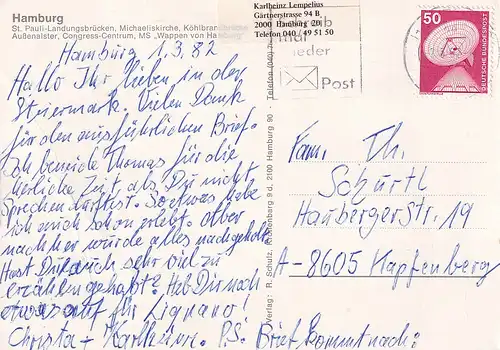 Hamburg
St. Pauli-Landungsbrücken, Michaeliskirche, Köhlbrandbrücke
Außenalster, Congress-Centrum, MS "Wappen von Hamburg"
Karlheinz Lempelius
Gärtnerstrasse 94 B
2000 Hamburg 20
Telefon 040 / 49 51 50
mal
wieder
Post
50
DEUTSCHE BUNDESPOST
Hamburg 1.3.82
Hallo Ihr lieben in der
Steiermark. Vielen Dank
für den ausführlichen Brief.
Ich beneide Thomas für die
herliche Zeit als Du nicht
Sprechen durftest. So etwas habe
ich auch schon erlebt. Aber
nachher würde alles nachgeholt.
Hast Du auch sehr viel zu
erzählen gehabt? Heb Dir noch
etwas auf für Lignano!
Christa + Karlheinz. P.S. Brief kommt nach!
Verlag: R. Schutz, 9 d, 200 Hamburg 90 · Telefon
Fam. Th.
Schürtl
Hambergerstr. 19
A-8605 Kapfenberg